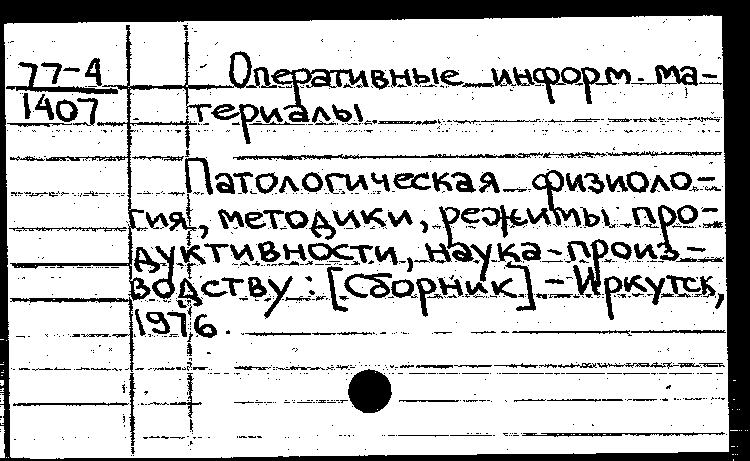 77-4
1407
Оперативные информ. ма-
териалы
Патологическая физиоло-
гия, методики, режимы про-
дуктивности, наука-произ-
водству: [Сборник] - Иркутск,
1976.